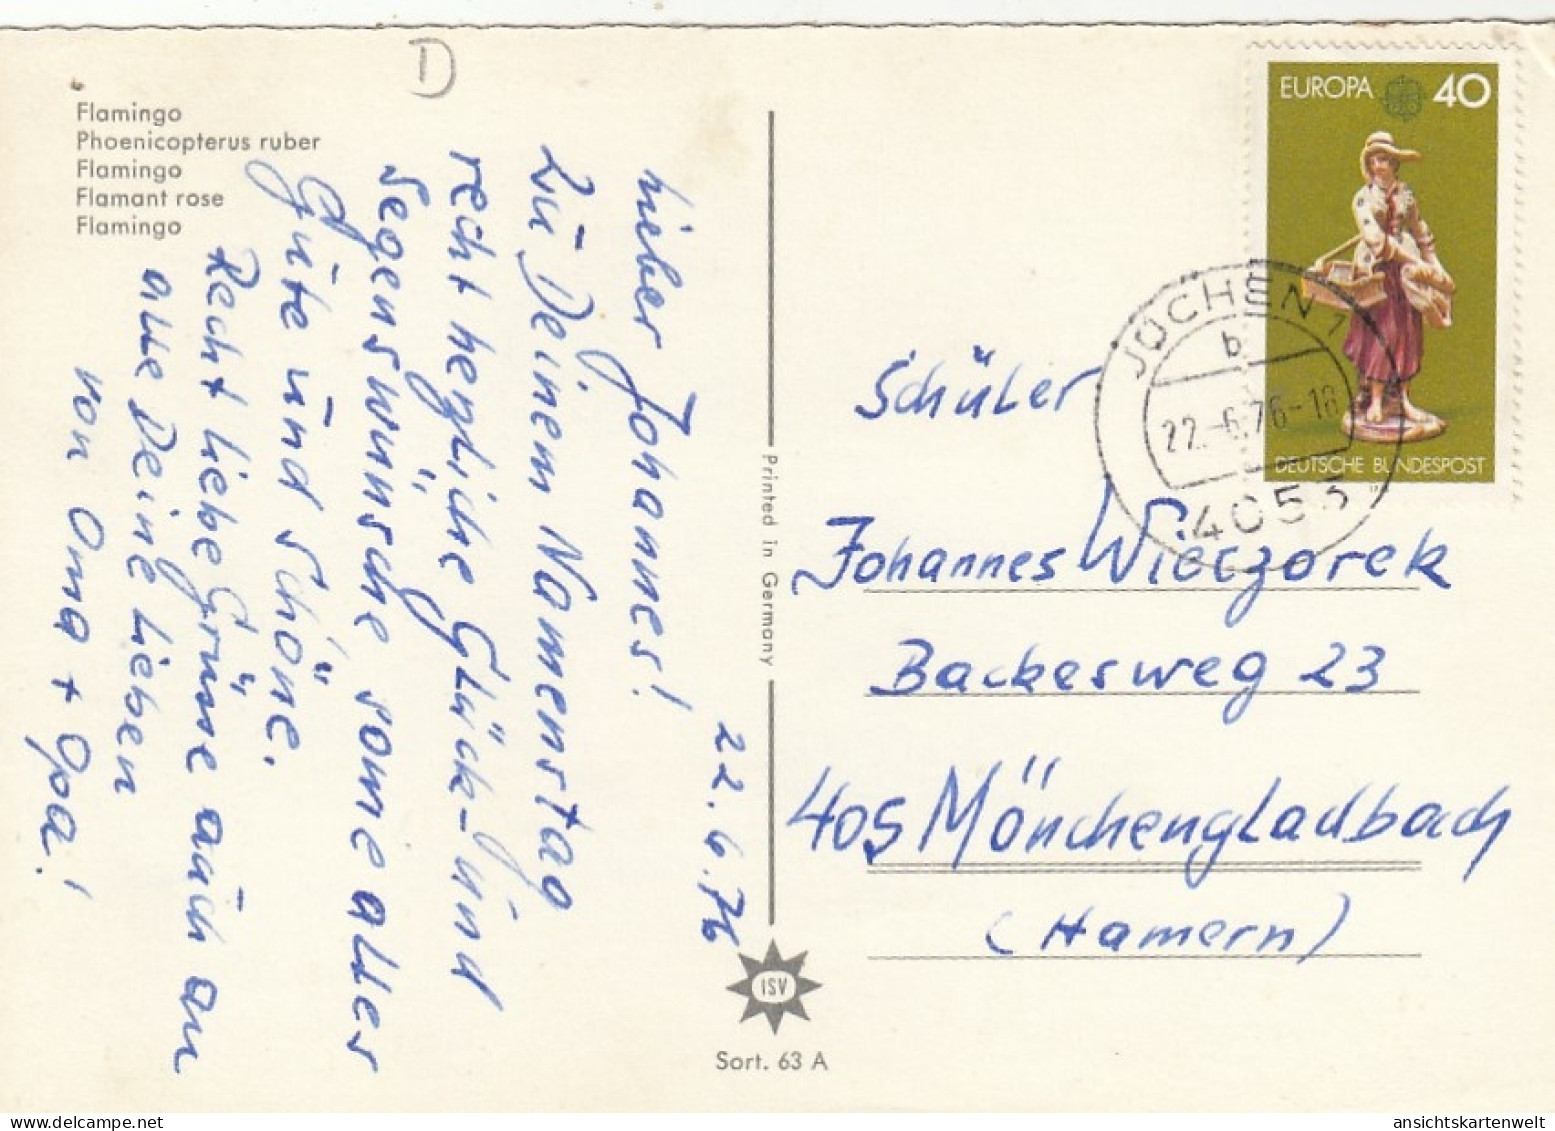 D
Flamingo
Phoenicopterus ruber
Flamingo
Flamant rose
Flamingo
22.6.76
Lieber Johannes!
Zu Deinem Namenstag
recht herzliche Glück- und
Segenswünsche sowie alles
Gute und Schöne.
Recht liebe Grüsse auch an
alle Deine Lieben
von Oma + Opa!
Printed in Germany
ISV
Sort. 63 A
EUROPA 40
DEUTSCHE BUNDESPOST
JÜCHEN 1
b
22.-6.76-18
4053
Schüler
Johannes Wieczorek
Backesweg 23
405 Mönchengladbach
(Hamern)
ansichtskartenwelt@delcampe.net